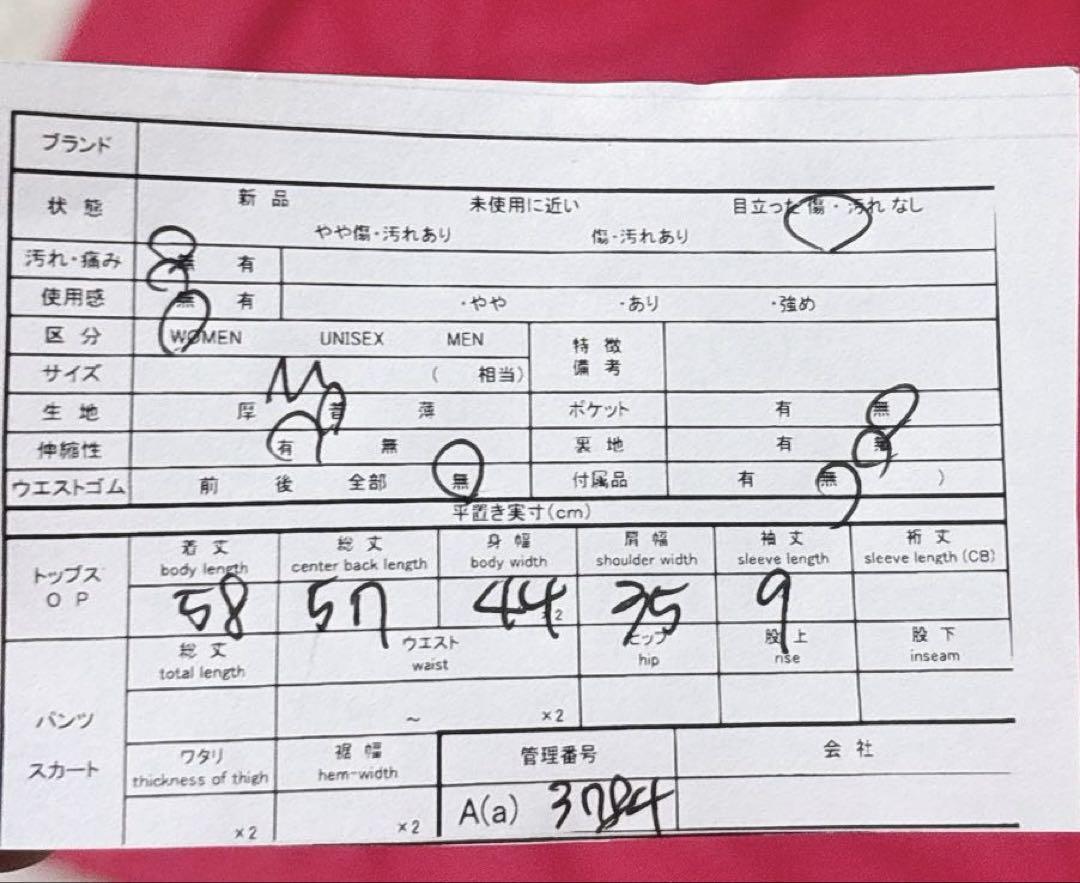 ブランド
状態 新品 未使用に近い 目立った傷・汚れなし
やや傷・汚れあり 傷・汚れあり
汚れ・痛み 無 有
使用感 無 有 ・やや ・あり ・強め
区分 WOMEN UNISEX MEN 特徴
備考
サイズ M ( 相当)
生地 厚 普 薄 ポケット 有 無
伸縮性 有 無 裏地 有 無
ウエストゴム 前 後 全部 無 付属品 有 無 )
平置き実寸(cm)
トップス
OP
着丈 総丈 身幅 肩幅 袖丈 裄丈
body length center back length body width shoulder width sleeve length sleeve length (CB)
58 57 44 ×2 35 9
総丈 ウエスト ヒップ 股上 股下
total length waist hip rise inseam
パンツ ~ ×2
スカート
ワタリ 裾幅 管理番号 会社
thickness of thigh hem-width
×2 ×2 A(a) 3784